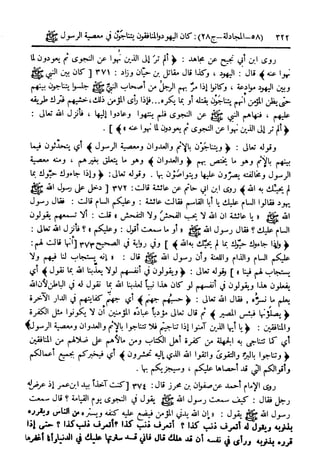 ٣٢٢ (٥٨-المجادلة-ج٢٨): كان اليهود والمنافقون يتناجون في معصية الرسول ﷺ
روى ابن أبي نجيح عن مجاهد: ﴿ألم تر إلى الذين نهوا عن النجوى ثم يعودون لما
نهوا عنه﴾ قال: اليهود، وكذا قال مقاتل بن حيان وزاد: ٣٧١ [كان بين النبي ﷺ
وبين اليهود موادعة، وكانوا إذا مر بهم الرجل من أصحاب النبي ﷺ جلسوا يتناجون بينهم
حتى يظن المؤمن أنهم يتناجون بقتله أو بما يكره...فإذا رأى المؤمن ذلك، خشيهم فترك طريقه
عليهم، فنهاهم النبي ﷺ عن النجوى فلم ينتهوا وعادوا إليها، فأنزل الله تعالى:
﴿ألم تر إلى الذين نهوا عن النجوى ثم يعودون لما نهوا عنه﴾].
وقوله تعالى: ﴿ويتناجون بالإثم والعدوان ومعصية الرسول﴾ أي يتحدثون فيما
بينهم بالإثم وهو ما يختص بهم ﴿والعدوان﴾ وهو ما يتعلق بغيرهم، ومنه معصية
الرسول ومخالفته يصرون عليها ويتواصون بها. وقوله تعالى: ﴿وإذا جاءوك حيوك بما
لم يحيك به الله﴾ روى ابن أبي حاتم عن عائشة قالت: ٣٧٢ [دخل على رسول الله ﷺ
يهود فقالوا السام عليك يا أبا القاسم فقالت عائشة: وعليكم السام قالت: فقال رسول
الله ﷺ يا عائشة ان الله لا يحب الفحش ولا التفحش، قلت: ألا تسمعهم يقولون
السام عليك؟ فقال رسول الله ﷺ: أو ما سمعت أقول: وعليكم؟ فأنزل الله تعالى:
﴿وإذا جاءوك حيوك بما لم يحيك به الله﴾] وفي رواية في الصحيح ٣٧٣ [أنها قالت لهم:
عليكم السام والذام واللعنة وأن رسول الله ﷺ قال: «إنه يستجاب لنا فيهم ولا
يستجاب لهم فينا»] وقوله تعالى: ﴿ويقولون في أنفسهم لولا يعذبنا الله بما نقول﴾ أي
يفعلون هذا ويقولون في أنفسهم لو كان هذا نبياً لعذبنا الله بما نقول له في الباطن لأن الله
يعلم ما نسره، فقال الله تعالى: ﴿حسبهم جهنم﴾ أي جهنم كفايتهم في الدار الآخرة
﴿يصلونها فبئس المصير﴾ ثم قال تعالى مؤدباً عباده المؤمنين أن لا يكونوا مثل الكفرة
والمنافقين: ﴿يا أيها الذين آمنوا إذا تناجيتم فلا تتناجوا بالإثم والعدوان ومعصية الرسول﴾
أي كما تتناجى به الجهلة من كفرة أهل الكتاب ومن مالأهم على ضلالهم من المنافقين
﴿وتناجوا بالبر والتقوى واتقوا الله الذي إليه تحشرون﴾ أي فيخبركم بجميع أعمالكم
وأقوالكم التي قد أحصاها عليكم، وسيجزيكم بها.
وروى الإمام أحمد عن صفوان بن محرز قال: ٣٧٤ [كنت آخذاً بيد ابن عمر إذ عرض له
رجل فقال: كيف سمعت رسول الله ﷺ يقول في النجوى يوم القيامة؟ قال سمعت
رسول الله ﷺ يقول: «إن الله يدني المؤمن فيضع عليه كنفه ويستره من الناس ويقرره
بذنوبه ويقول له أتعرف ذنب كذا؟ أتعرف ذنب كذا؟ أتعرف ذنب كذا؟ حتى إذا
قرره بذنوبه ورأى في نفسه أن قد هلك قال فاني قد سترتها عليك في الدنيا وأنا أغفرها